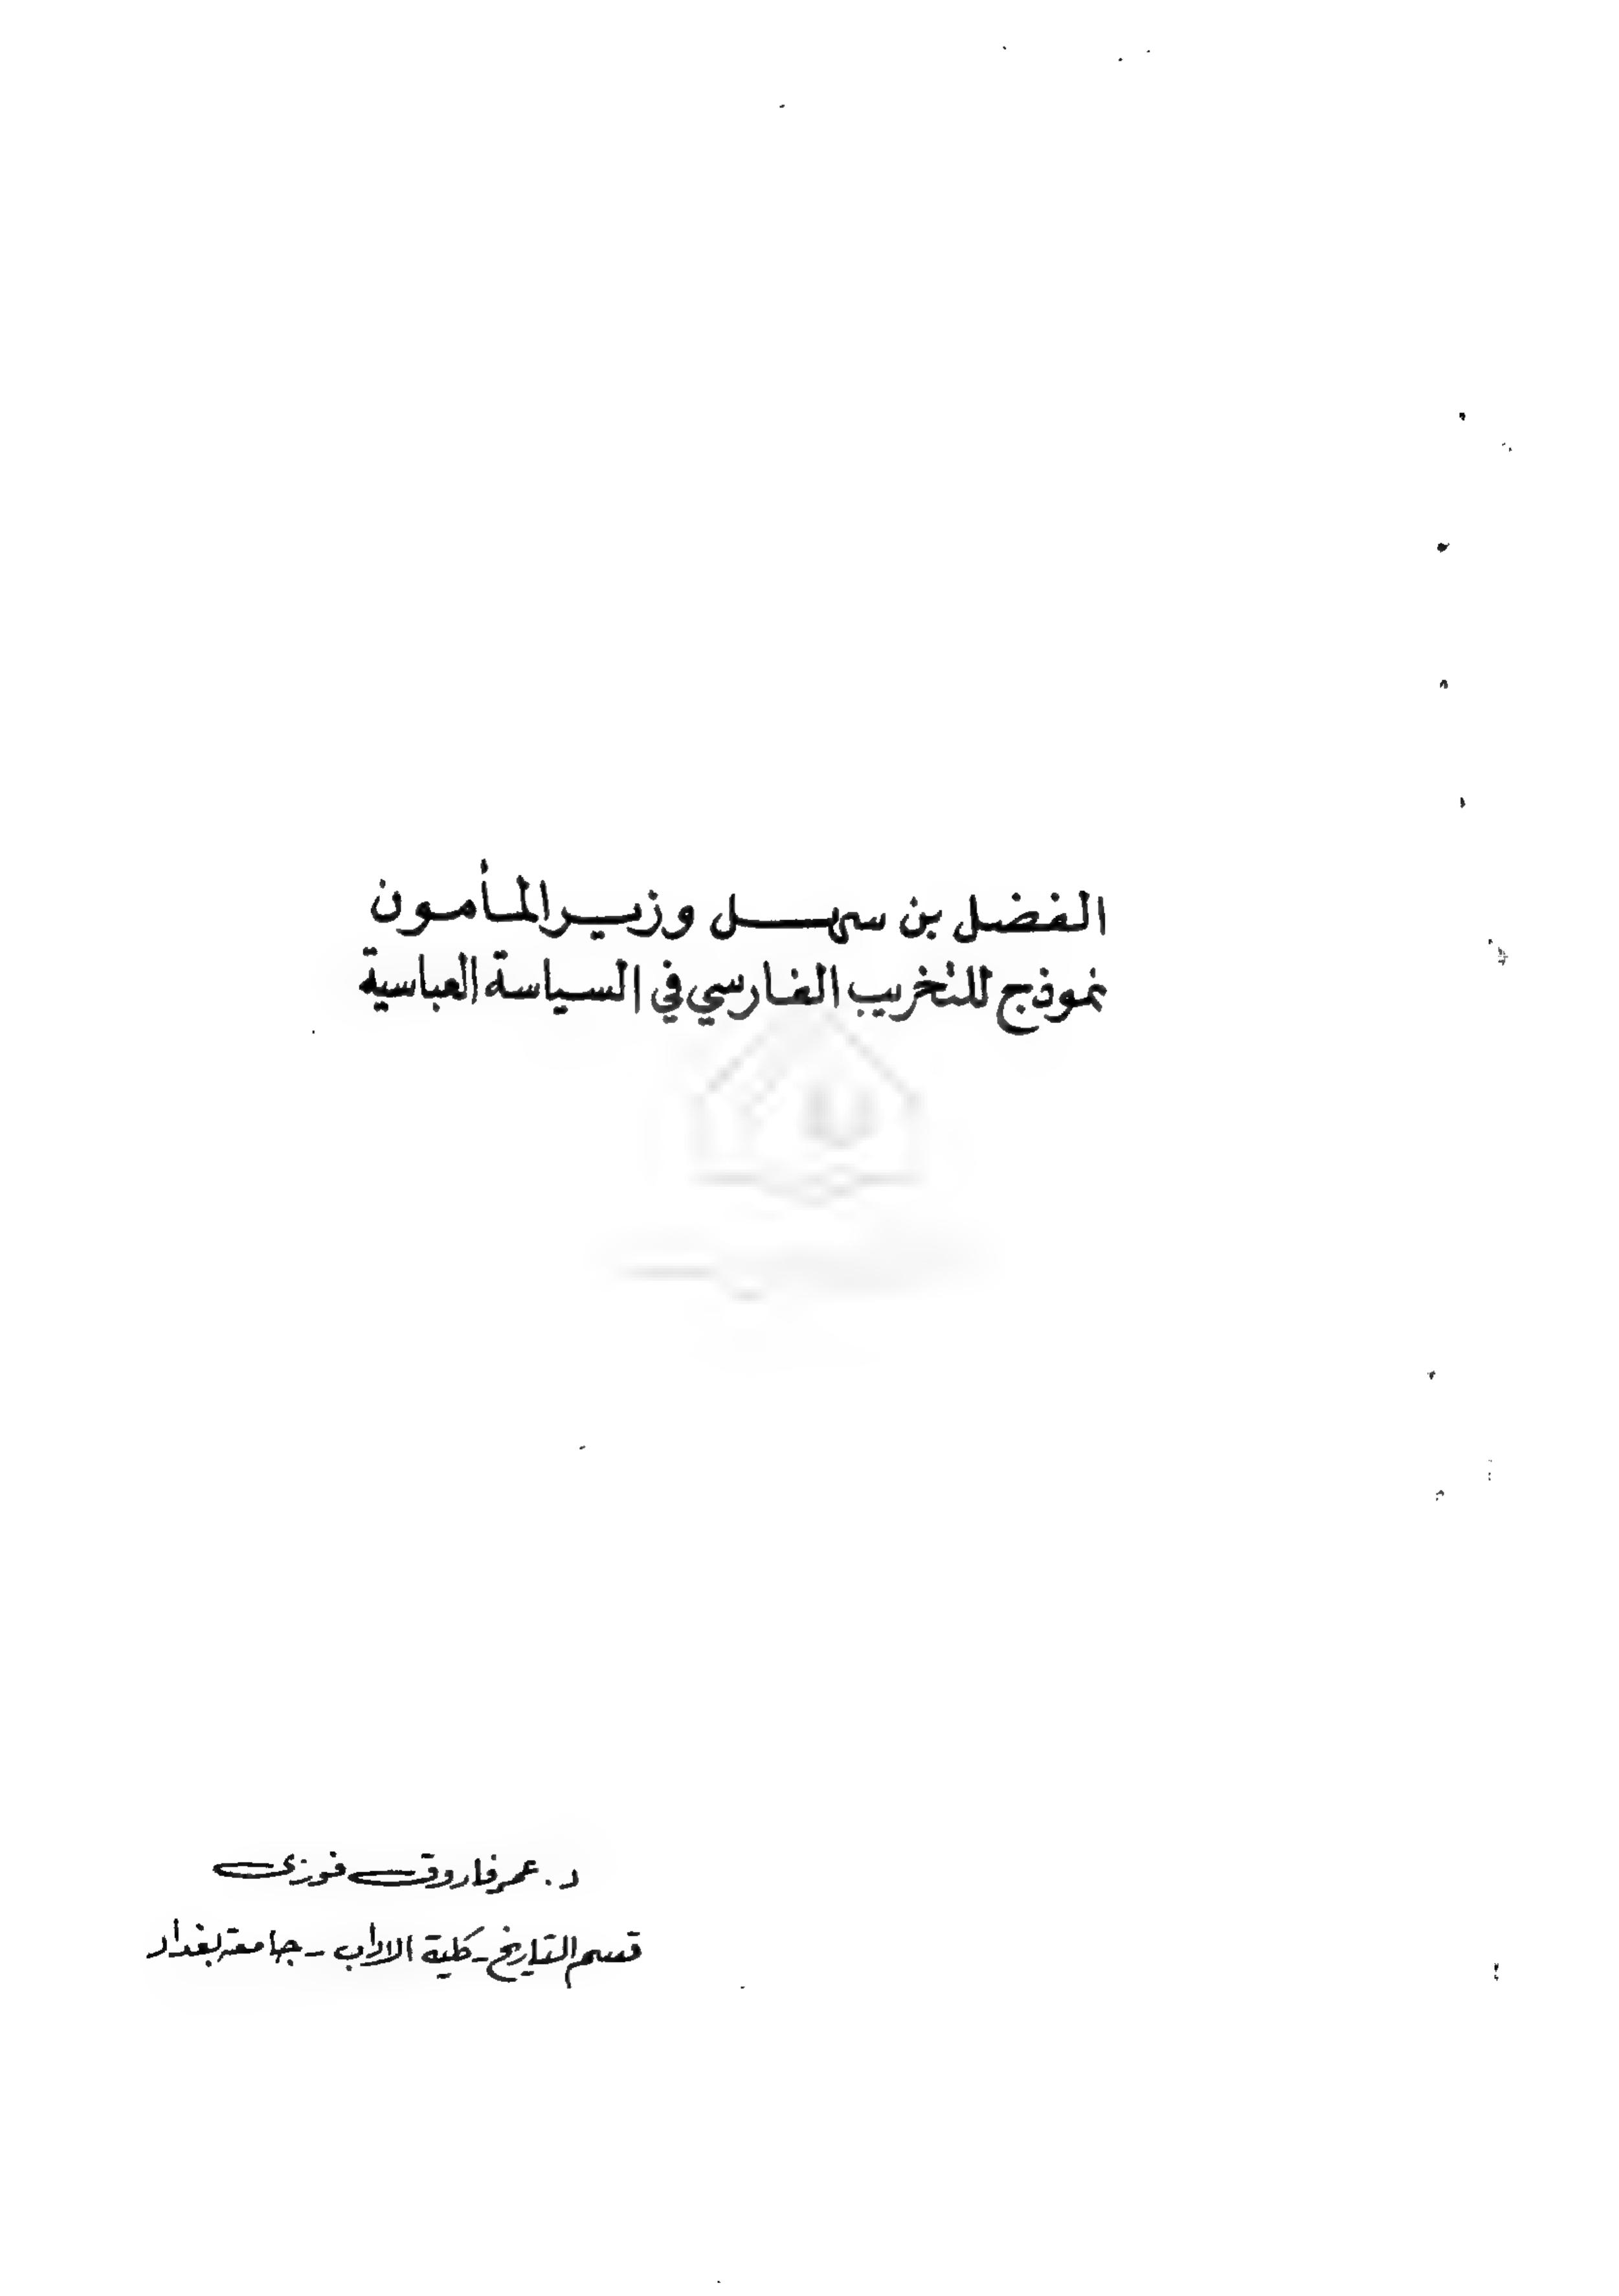 الفضل بن سهل وزير المأمون
نموذج للتخريب الفارسي في السياسة العباسية
د. عمر فاروق فوزى
قسم التاريخ - كلية الاداب - جامعة بغداد